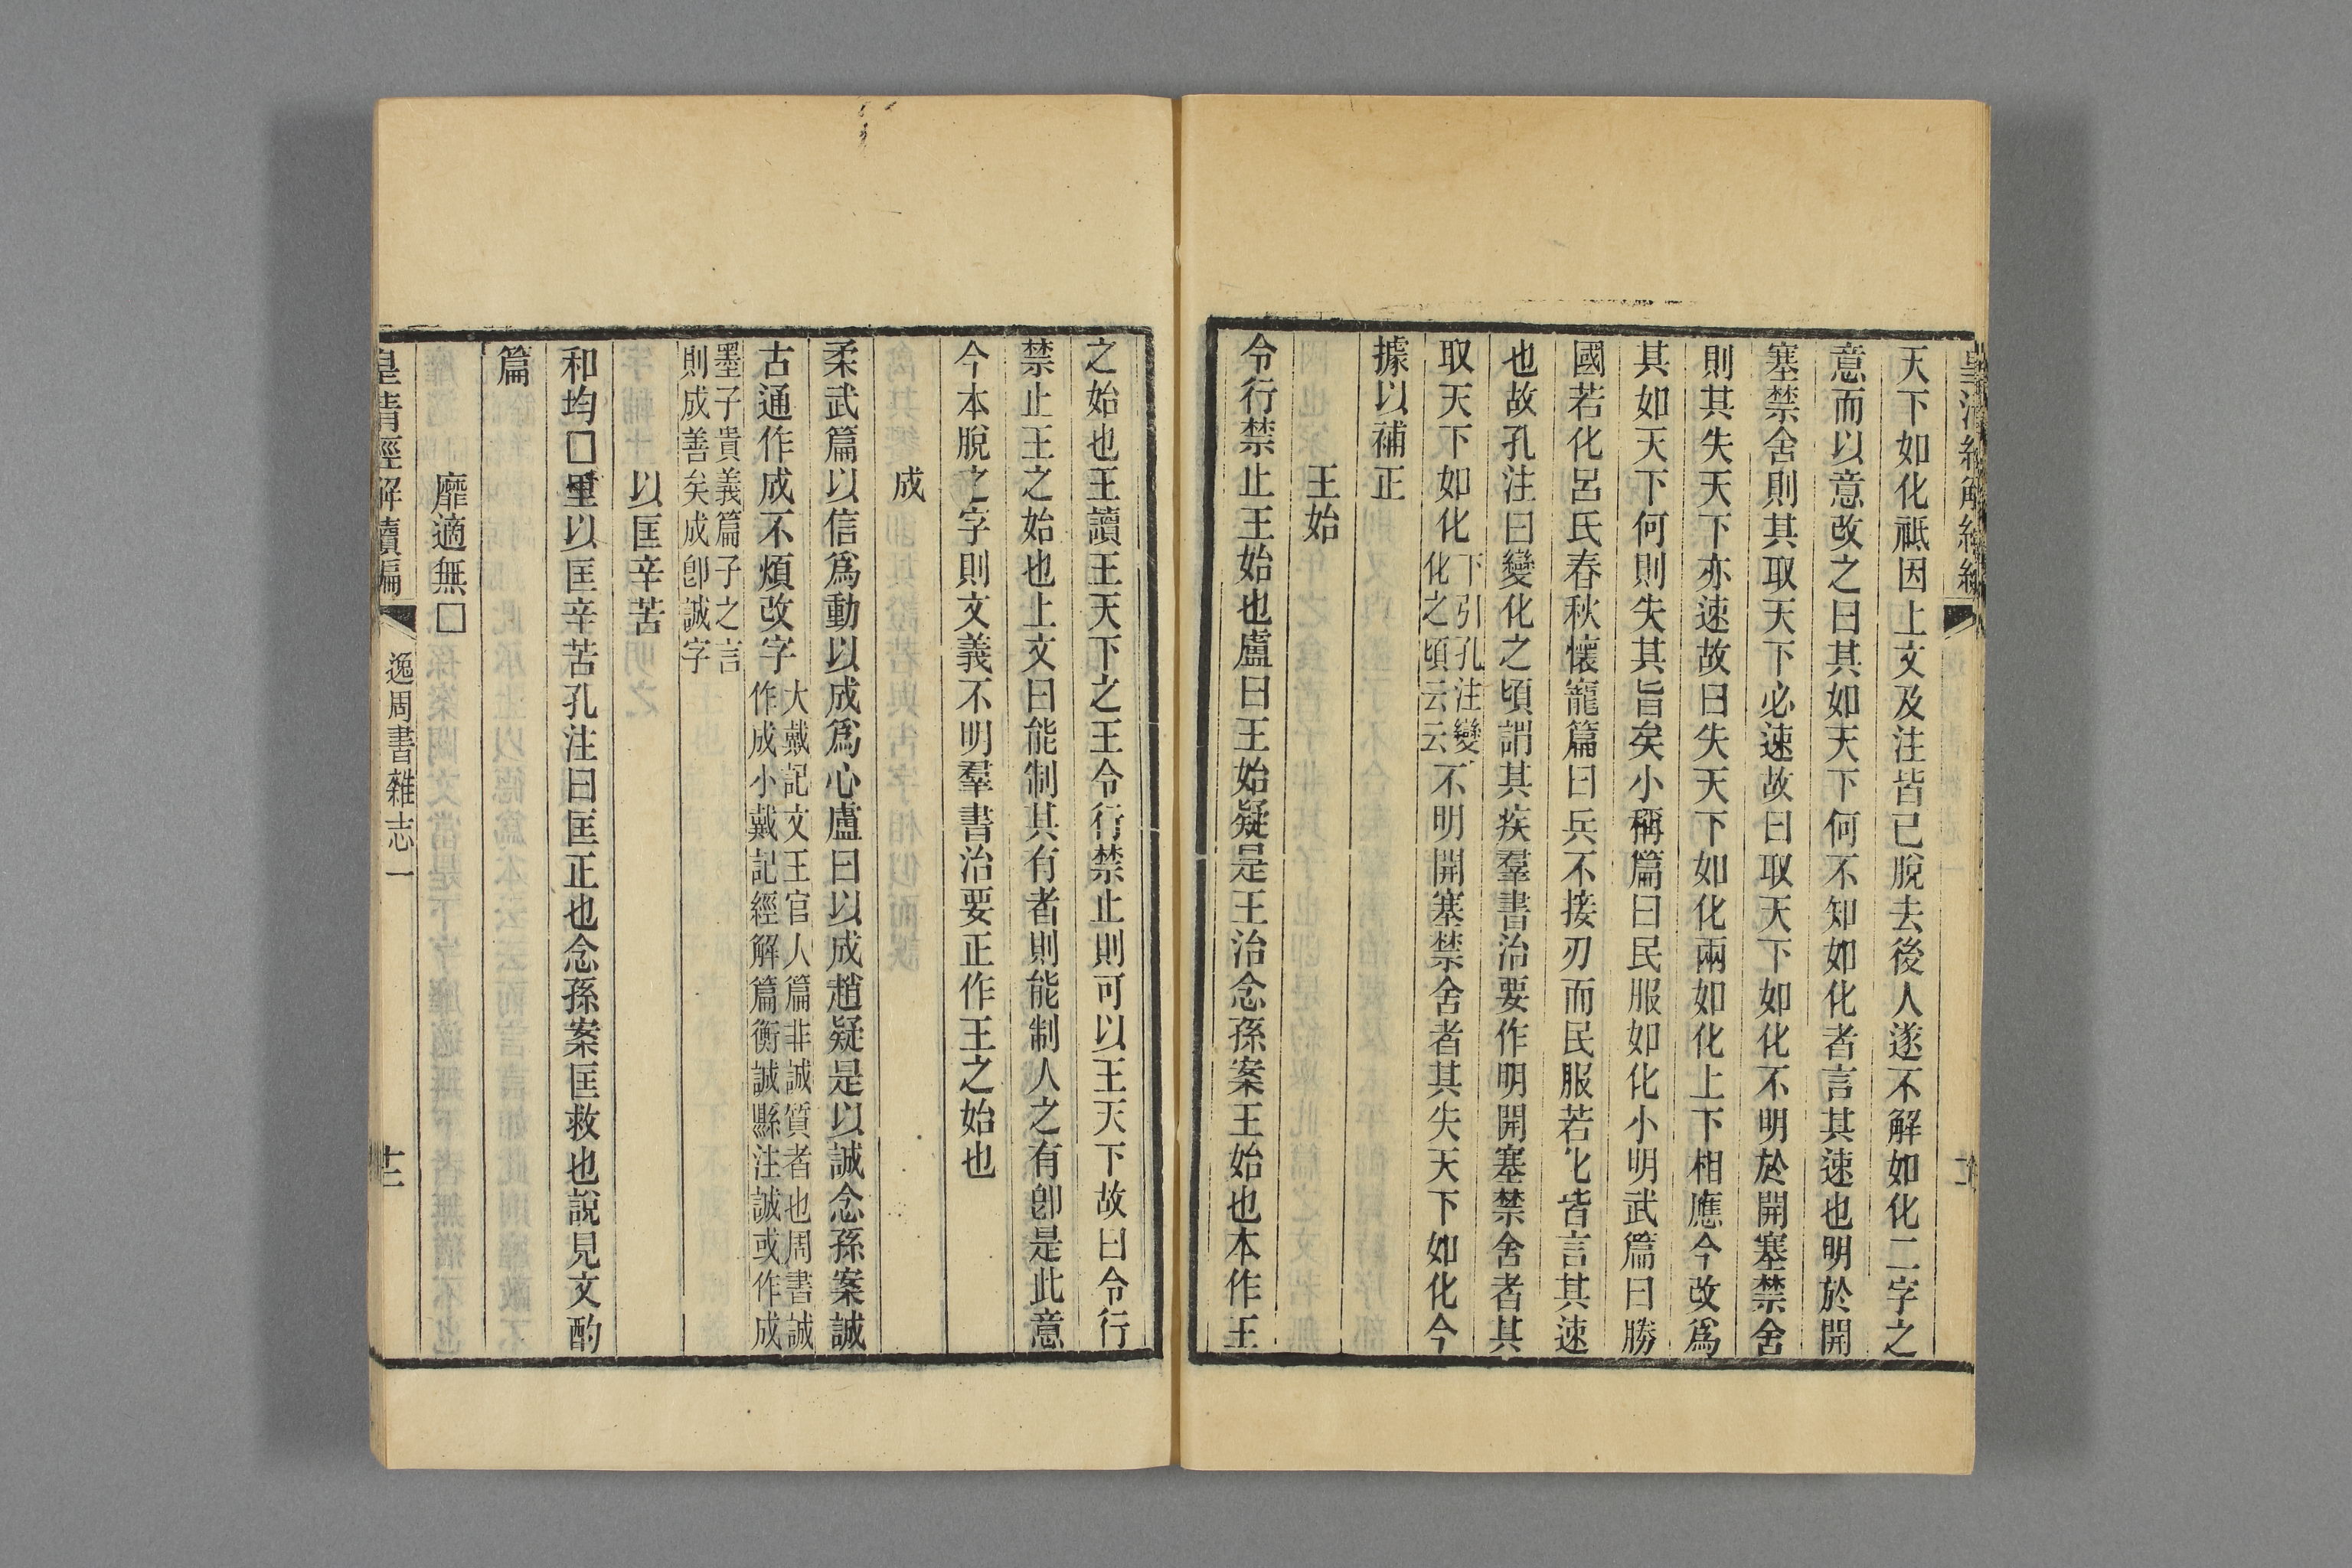 天下如化祗因上文及注皆已脫去後人遂不解如化二字之
意而以意改之曰其如天下何不知如化者言其速也明於開
塞禁舍則其取天下必速故曰取天下如化不明於開塞禁舍
則其失天下亦速故曰失天下如化兩如化上下相應今改爲
其如天下何則失其旨矣小稱篇曰民服如化小明武篇曰勝
國若化呂氏春秋懷寵篇曰兵不接刃而民服若化皆言其速
也故孔注曰變化之頃謂其疾羣書治要作明開塞禁舍者其
取天下如化下引孔注變化之頃云云不明開塞禁舍者其失天下如化今
據以補正
王始
令行禁止王始也盧曰王始疑是王治念孫案王始也本作王
之始也王讀王天下之王令行禁止則可以王天下故曰令行
禁止王之始也上文曰能制其有者則能制人之有卽是此意
今本脫之字則文義不明羣書治要正作王之始也
成
柔武篇以信爲動以成爲心盧曰以成趙疑是以誠念孫案誠
古通作成不煩改字大戴記文王官人篇非誠質者也周書誠作成小戴記經解篇衡誠縣注誠或作成
墨子貴義篇子之言則成善矣成卽誠字
以匡辛苦
和均□里以匡辛苦孔注曰匡正也念孫案匡救也說見文酌
篇
靡適無□
皇清經解續編
逸周書雜志一